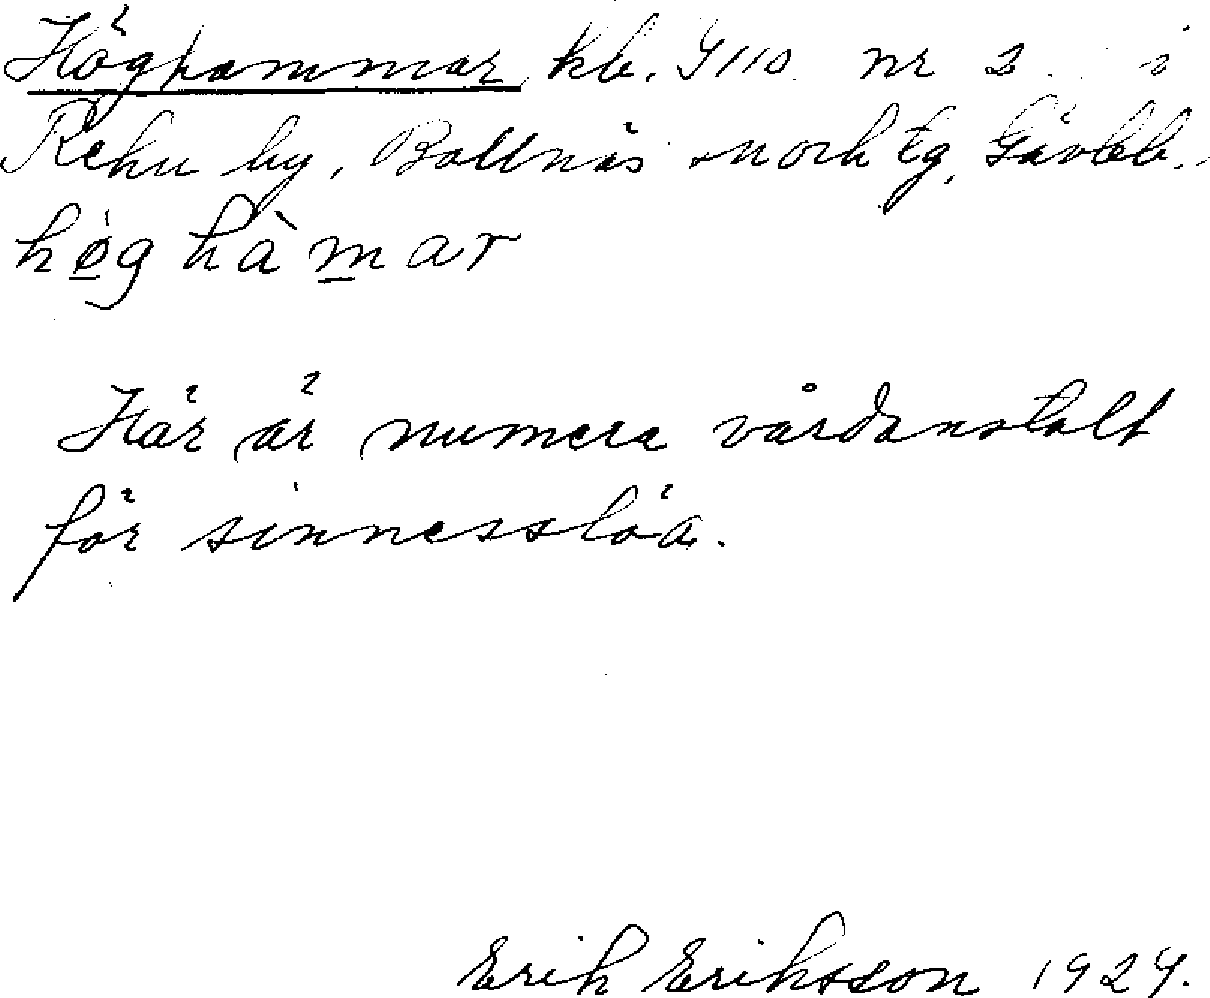 Höghammar kb. 4110 nr 2 i
Rehn by, Bollnäs sn och tg, Gävleb.
høg hàmar
Här är numera vårdanstalt
för sinnesslöa.
Erik Eriksson 1924.